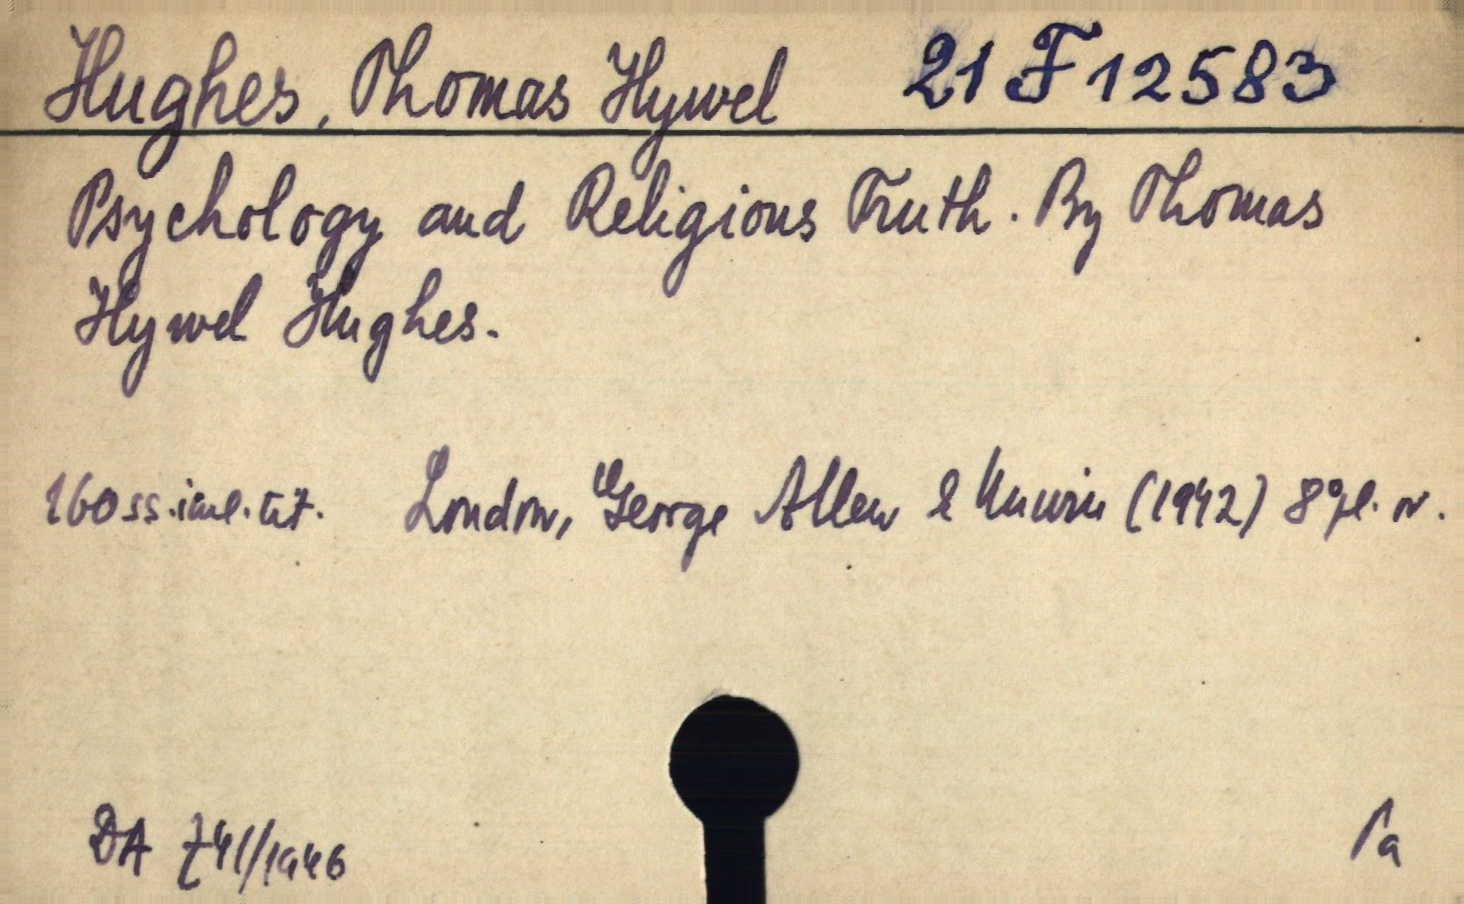 Hughes, Thomas Hywel 21 F 12583
Psychology and Religious Truth. By Thomas
Hywel Hughes.
160 ss. incl. tit. London, George Allen & Unwin (1942) 8° pl. v.
DA 741/1946